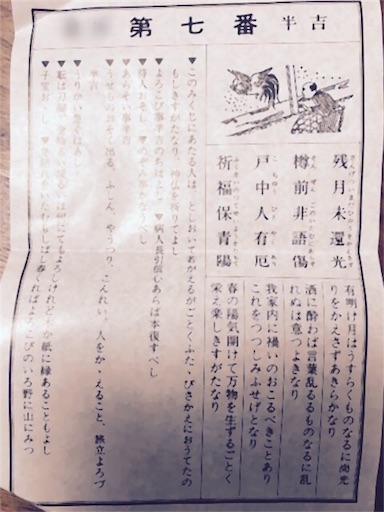 第七番 半吉
残月未還光
樽前非語傷
戸中人有厄
祈福保青陽
有明け月はうすらくものなるに尚光
りをかえさずあきらかなり
酒に酔わば言葉乱るるものなるに乱
れぬは意つよきなり
我家内に禍いのおこるべきことあり
これをつつしみふせげとなり
春の陽気開けて万物を生ずるごとく
栄え楽しきすがたなり
▼このみくじにあたる人は、としおいて若がえるがごとくふたゝびさかえにおうてたの
もしきすがたなり、神仏を祈りてよし
▼よろこび事半吉のちほどよし ▼病人長引信心あらば本復すべし
▼待人おそし ▼のぞみ事かなうべし
▼あらそい事半吉
▼うせものおそく出る、ふしん、やうつり、こんれい、人をかゝえること、旅立よろづ
半吉
▼うりかい急ぐはあし
にてもよろしけれどしか紙に縁あることもよし
▼子宝おゝし
春くればよろこびのいろ野に山にみつ